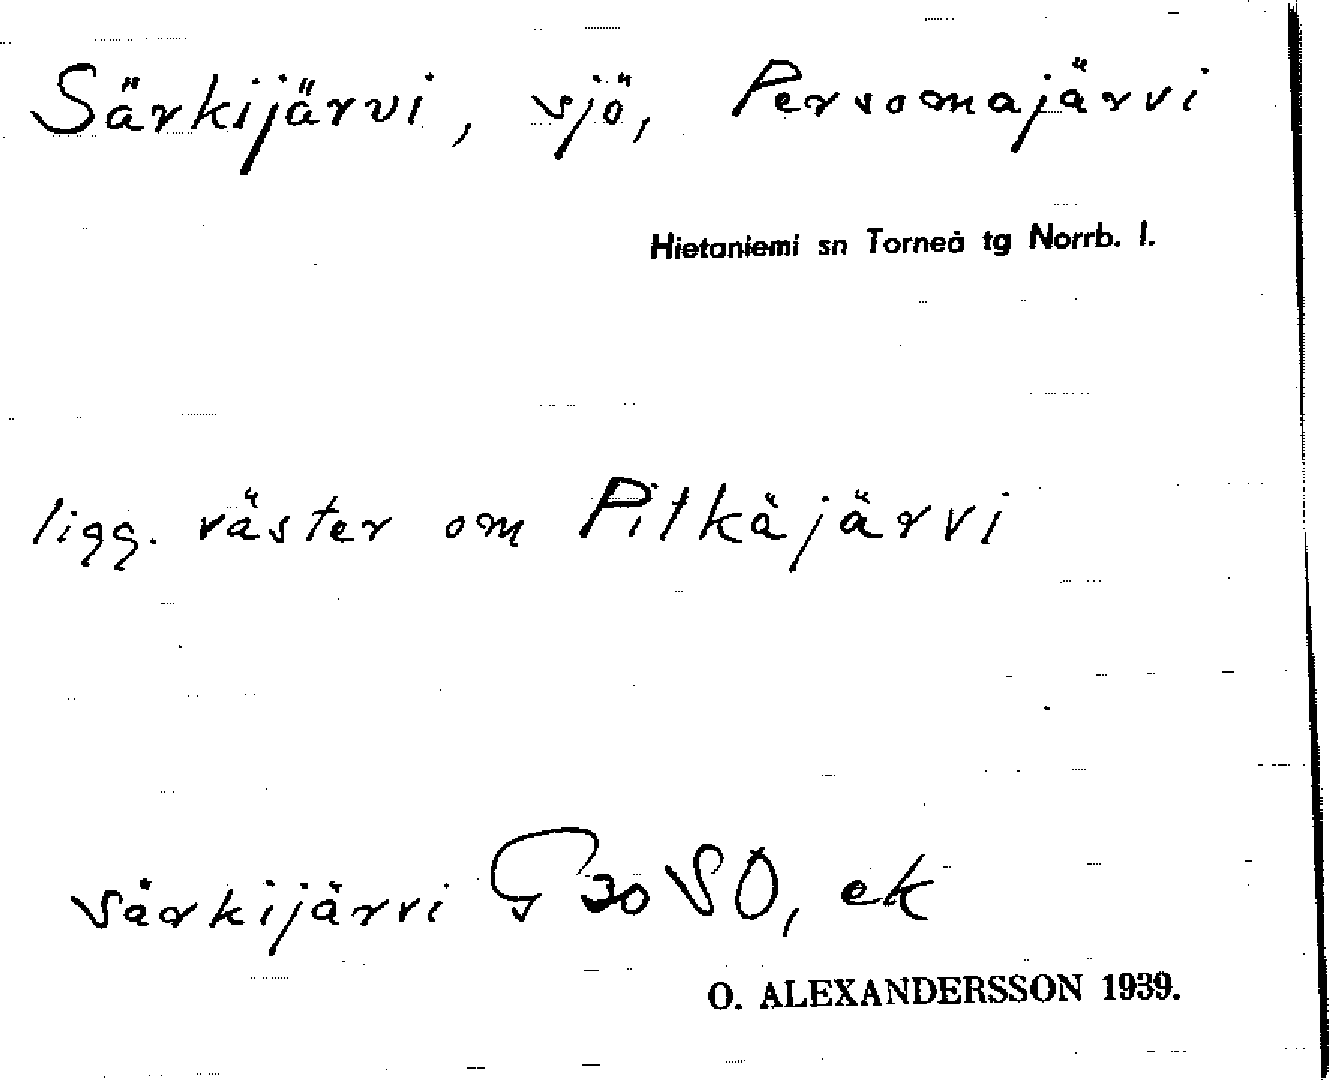 Särkijärvi, sjö, Persomajärvi
Hietaniemi sn Torneå tg Norrb. l.
ligg. väster om Pitkäjärvi
särkijärvi G 30 SO, ek
O. ALEXANDERSSON 1939.